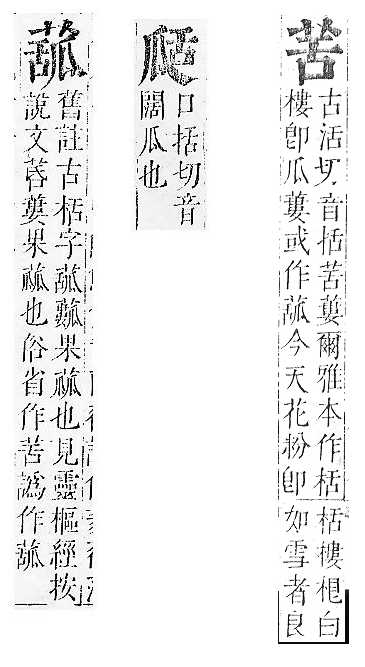 䒷
古活切音括䒷蔞爾雅本作栝
樓卽瓜蔞或作今天花粉卽
栝樓根白
如雪者良
口括切音
闊瓜也
舊註古栝字果蓏也見靈樞經按
說文蔞果蓏也俗省作䒷譌作